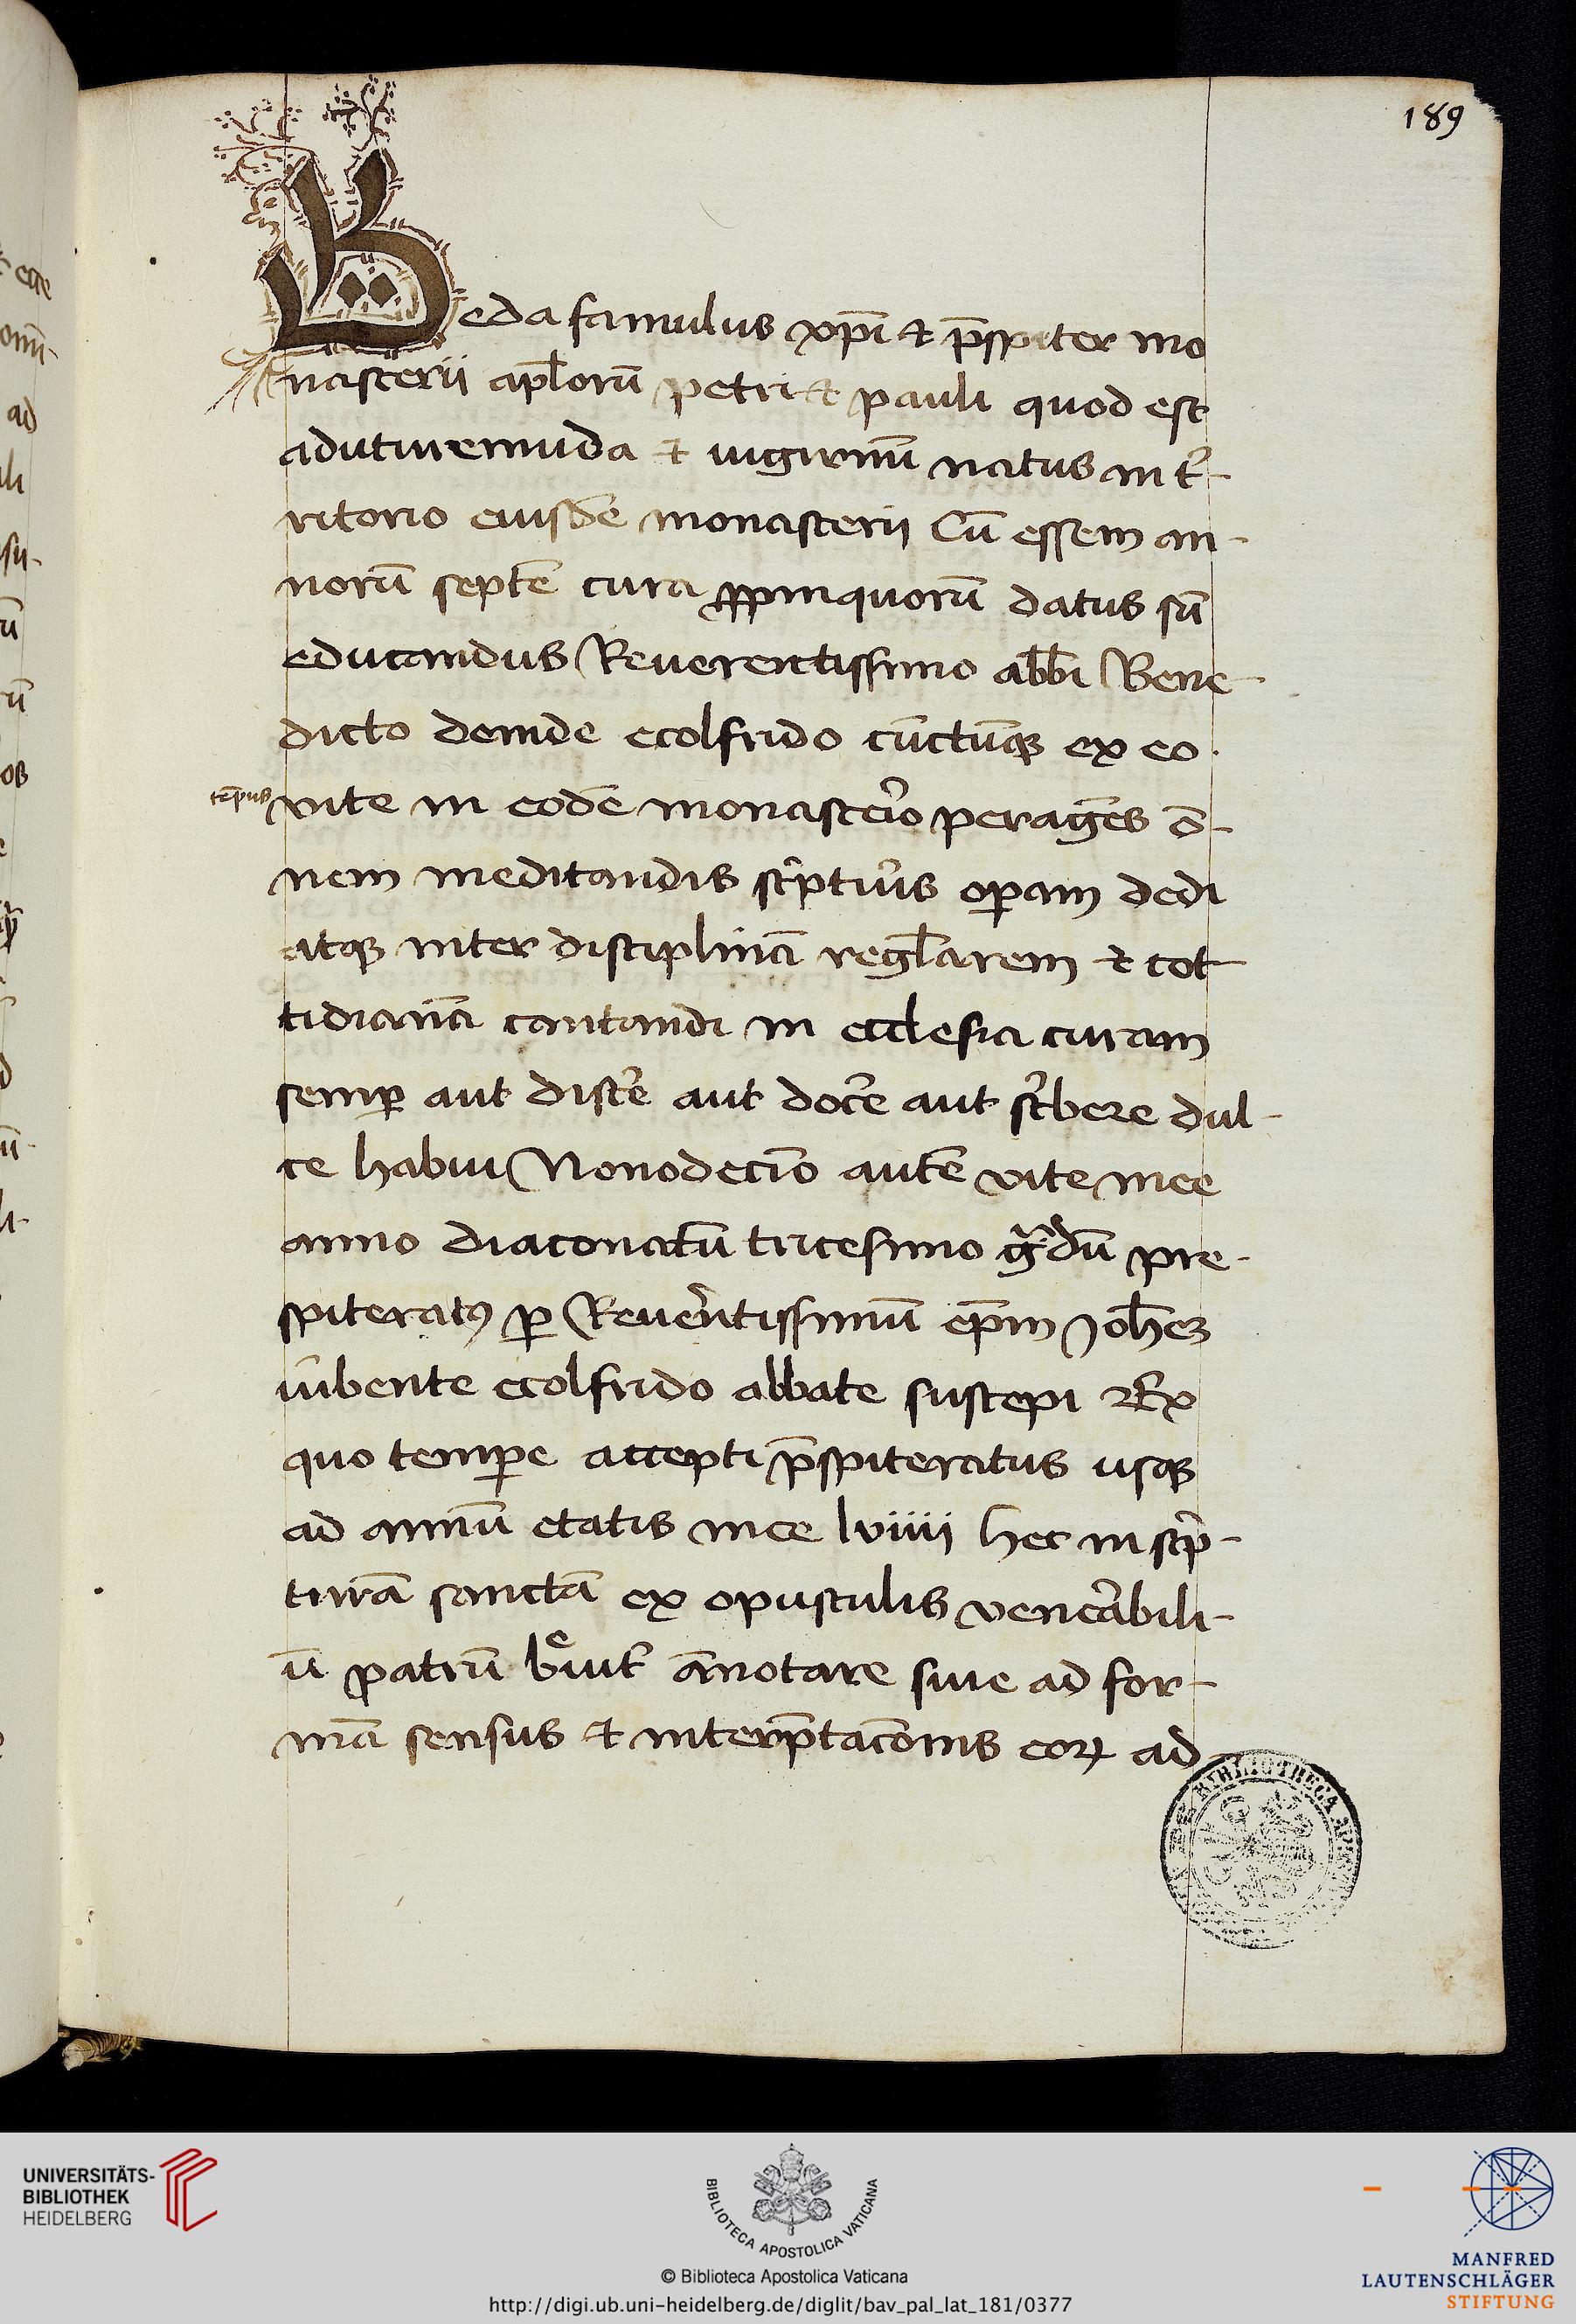 189
Beda famulus xp̄i et p̄spiter mo
nasterii apl̄orū petri et pauli quod est
ad utiuremuda et uigirnū natus in t̄
ritorio eiusdē monasterii Cū essem an-
norū septē cura ꝓpinquorū datus sū
educandus Reuerentissimo abb̄i Bene-
dicto deinde ecolfrido cūctūqꝫ ex eo
tēpus
vite in eodē monasterͥo peragēs ō-
nem meditandis scͥpturͥs oꝑam dedi
atqꝫ inter disciplinā regl̄arem et cot
tidianā cantandi in ecclesia curam
semꝑ aut discēre aut docēre aut scͥbere dul-
ce habui Nonodecīo autē vite mee
anno diaconatū tricesimo gͣdū pre-
spiteratꝰ ꝑ Reuērentissimū ep̄m Joh̄eꝫ
iubente ecolfrido abbate suscepi Ex
quo temꝑe accepti p̄spiteratus usqꝫ
ad annū etatis mee lviiii hec in scͥp-
turā sanctā ex opusculis venerͣbili-
ū patrū bͤuit̄ ānotare siue ad for-
mā sensus et interp̄tac̄onis eoꝝ ad
BIBLIOTHECA
UNIVERSITÄTS-
BIBLIOTHEK
HEIDELBERG
BIBLIOTECA APOSTOLICA VATICANA
© Biblioteca Apostolica Vaticana
http://digi.ub.uni-heidelberg.de/diglit/bav_pal_lat_181/0377
MANFRED
LAUTENSCHLÄGER
STIFTUNG